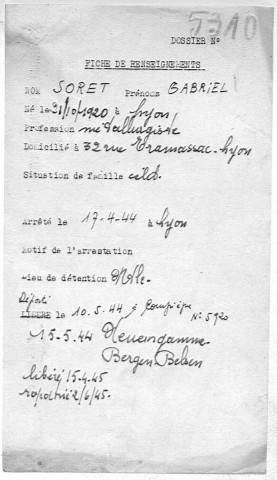 5310
DOSSIER N°
FICHE DE RENSEIGNEMENTS
NOM SORET Prénoms GABRIEL
Né le 21/10/1920 à Lyon
Profession métallugiste
Domicilié à 32 rue Tramassac. Lyon
Situation de famille célib.
Arrêté le 17-4-44 à Lyon
Motif de l'arrestation
Lieu de détention
Déporté
LIBERE le 10.5.44 à Compiègne N° 5920
15-5.44 Neuengamme
Bergen Belsen
libéré 15.4.45
rapatrié 2/6/45.